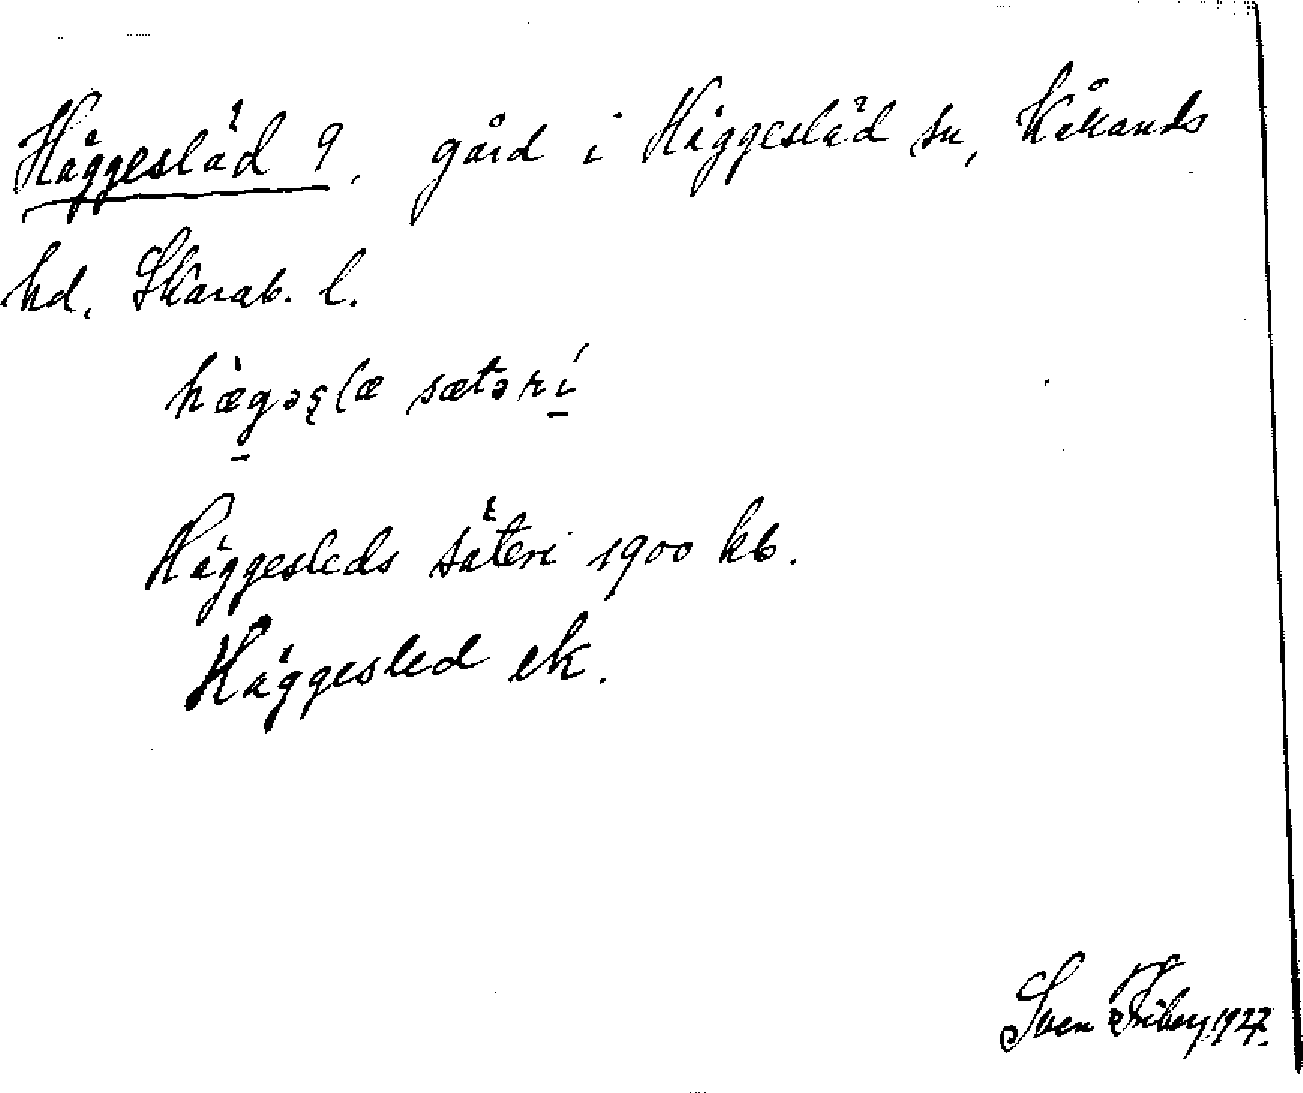 Häggesläd 9, gård i Häggesläd sn, Kåkands
hd. Skarab. l.
hæ̀gəsla sætərí
Häggesleds säteri 1900 kb.
Häggesled ek.
Sven Friberg 1927.